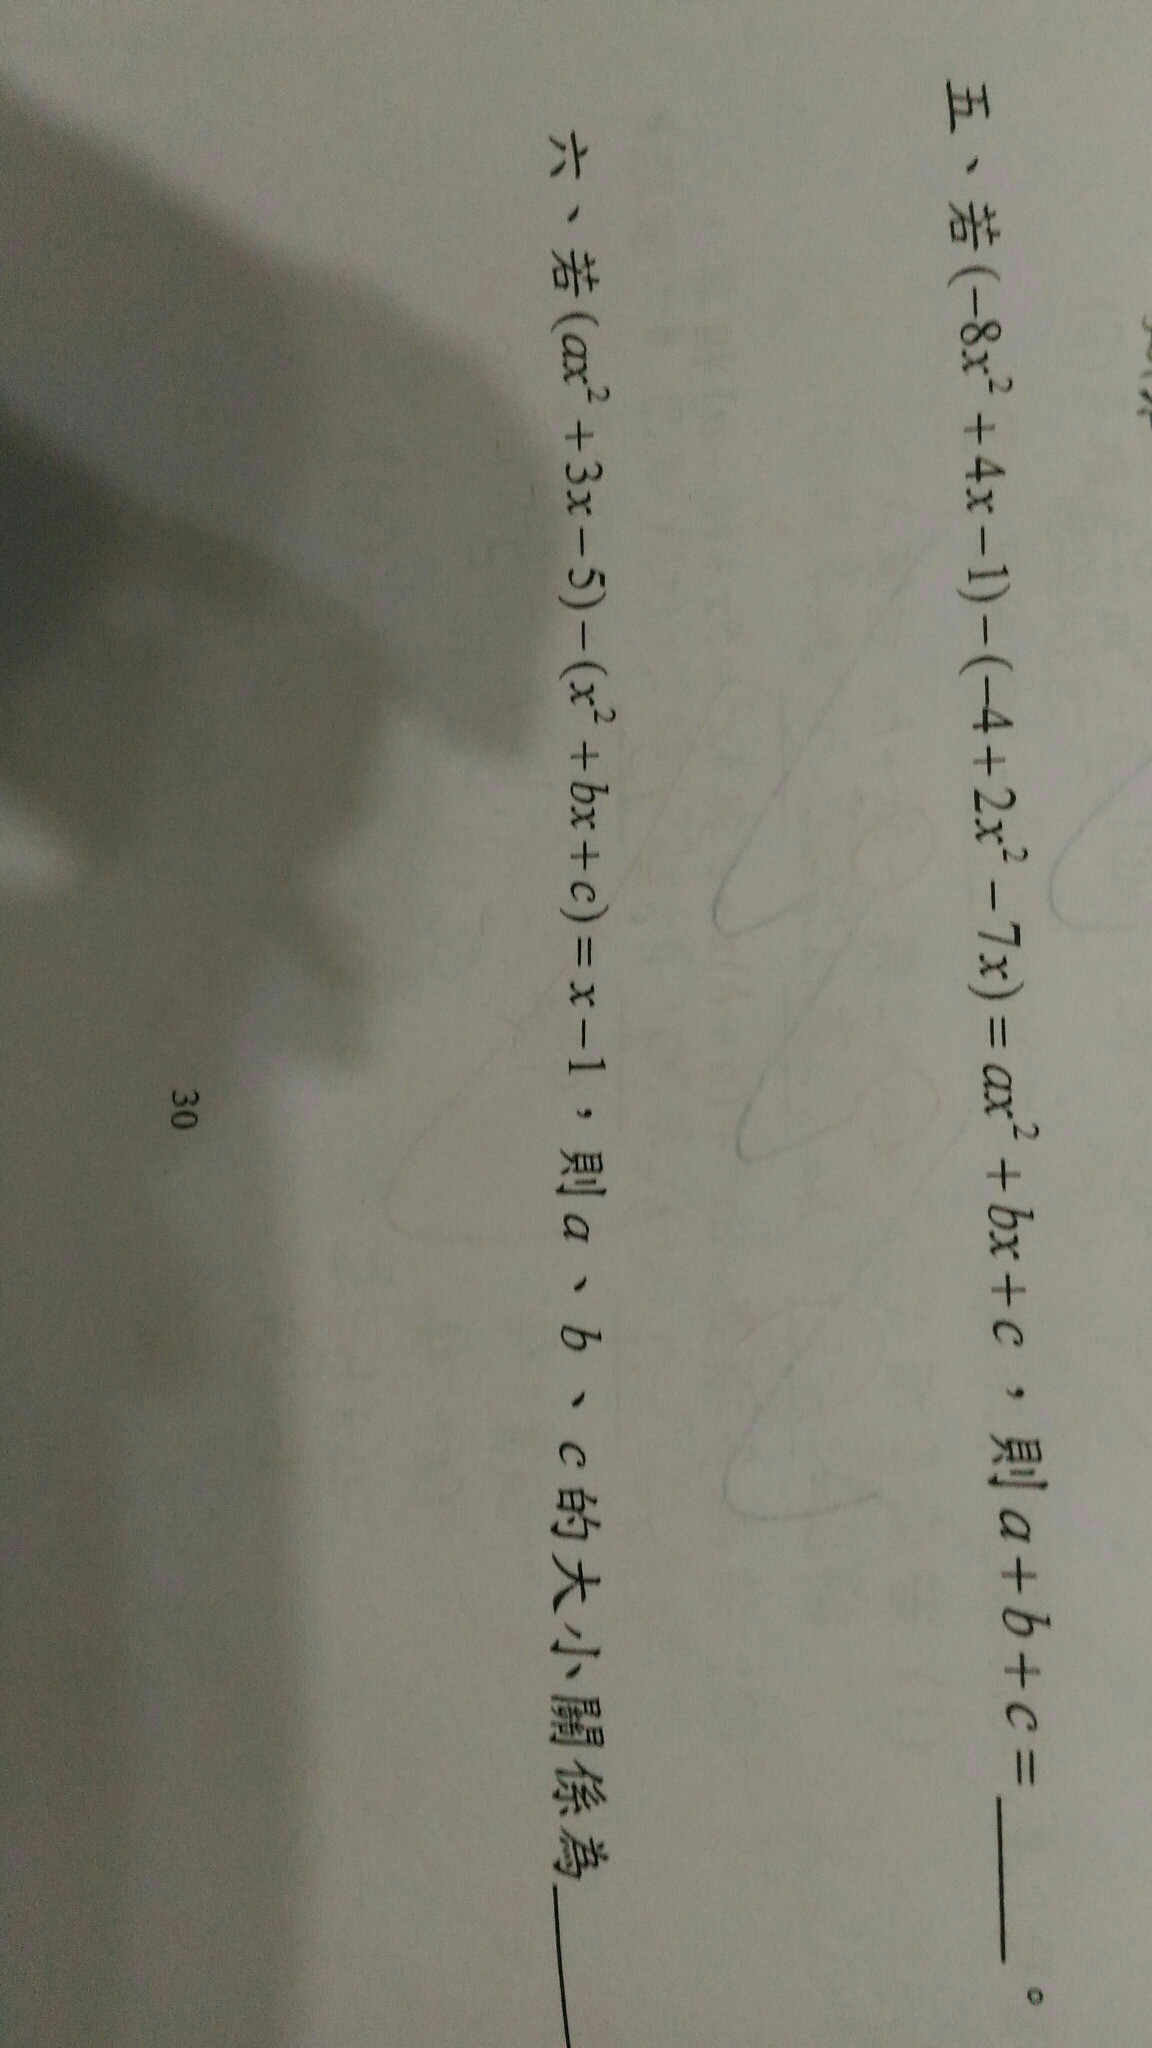 五、若(-8x²+4x-1)-(-4+2x²-7x)=ax²+bx+c，則a+b+c=______。
六、若(ax²+3x-5)-(x²+bx+c)=x-1，則a、b、c的大小關係為______
30